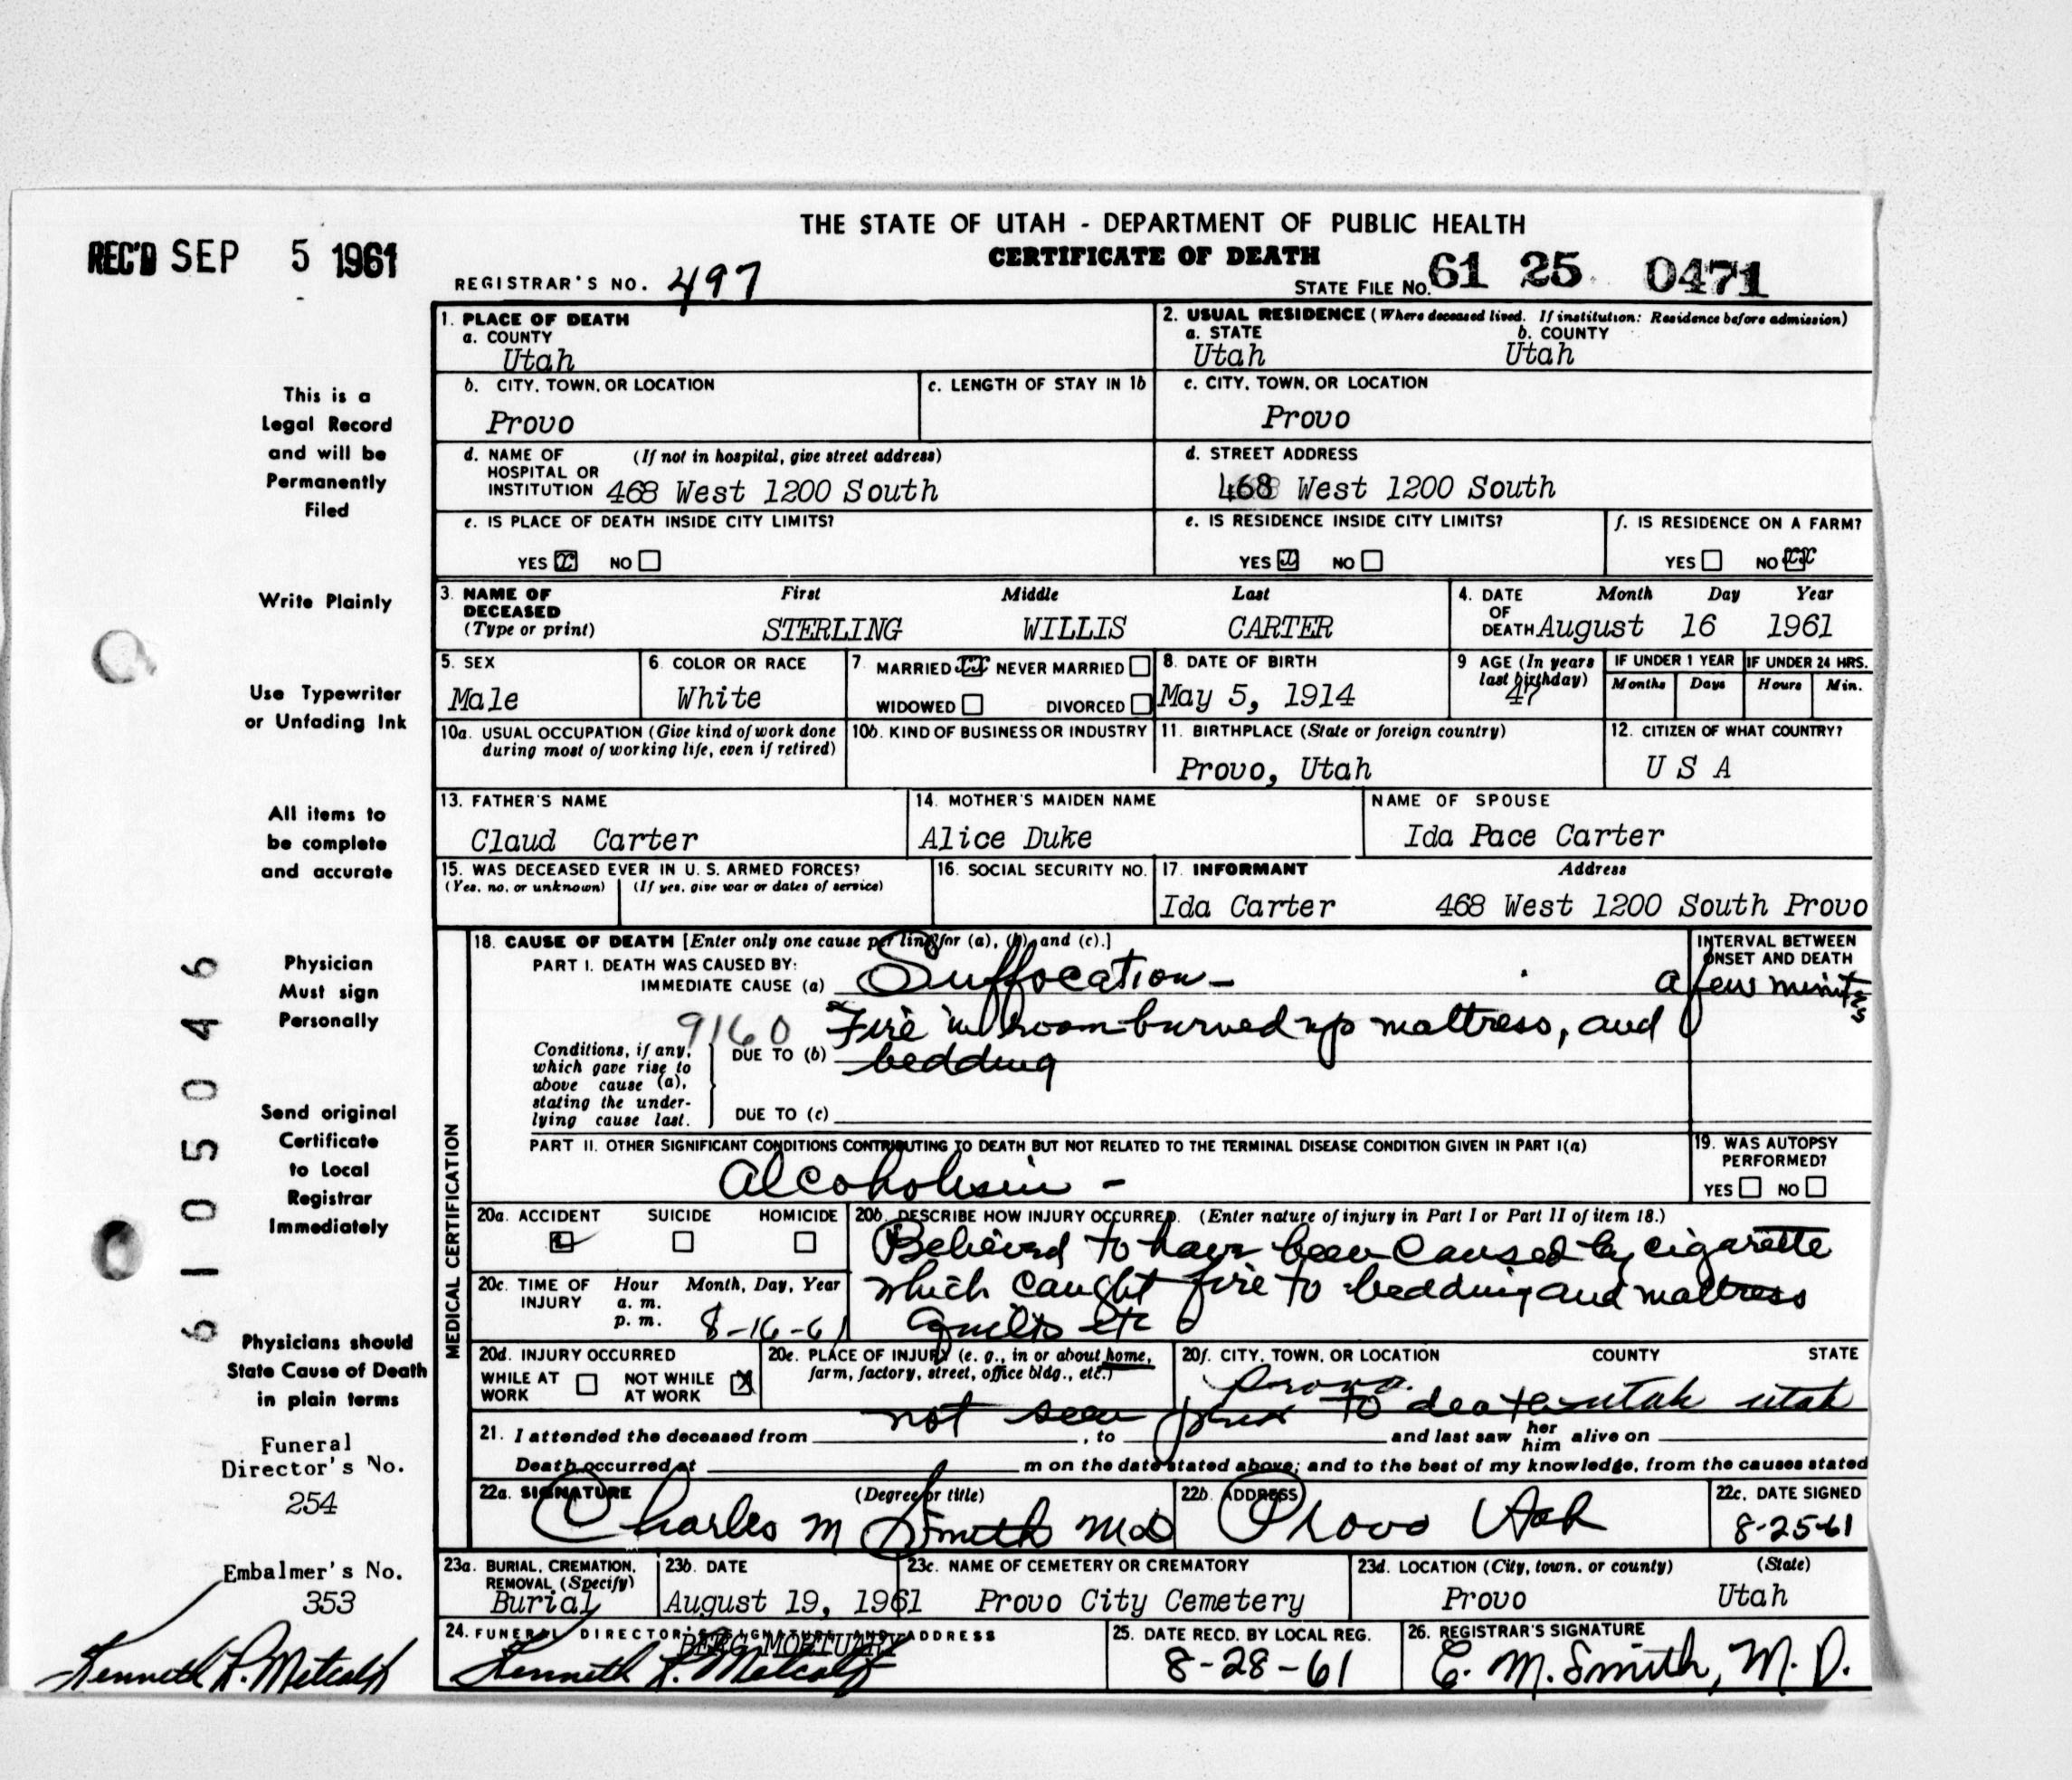 THE STATE OF UTAH - DEPARTMENT OF PUBLIC HEALTH
REC'D SEP 5 1961
CERTIFICATE OF DEATH
REGISTRAR'S NO. 497
STATE FILE NO. 61 25 0471
This is a
Legal Record
and will be
Permanently
Filed
Write Plainly
Use Typewriter
or Unfading Ink
All items to
be complete
and accurate
Physician
Must sign
Personally
Send original
Certificate
to Local
Registrar
Immediately
Physicians should
State Cause of Death
in plain terms
Funeral
Director's No.
254
Embalmer's No.
353
Kenneth L. Metcalf
6105046
1. PLACE OF DEATH
a. COUNTY
Utah
2. USUAL RESIDENCE (Where deceased lived. If institution: Residence before admission)
a. STATE b. COUNTY
Utah Utah
b. CITY, TOWN, OR LOCATION
Provo
c. LENGTH OF STAY IN 1b
c. CITY, TOWN, OR LOCATION
Provo
d. NAME OF (If not in hospital, give street address)
HOSPITAL OR
INSTITUTION 468 West 1200 South
d. STREET ADDRESS
468 West 1200 South
e. IS PLACE OF DEATH INSIDE CITY LIMITS?
YES x NO
e. IS RESIDENCE INSIDE CITY LIMITS?
YES x NO
f. IS RESIDENCE ON A FARM?
YES NO xx
3. NAME OF First Middle Last
DECEASED
(Type or print) STERLING WILLIS CARTER
4. DATE Month Day Year
OF
DEATH August 16 1961
5. SEX
Male
6. COLOR OR RACE
White
7. MARRIED xx NEVER MARRIED
WIDOWED DIVORCED
8. DATE OF BIRTH
May 5, 1914
9 AGE (In years
last birthday)
47
IF UNDER 1 YEAR
Months Days
IF UNDER 24 HRS.
Hours Min.
10a. USUAL OCCUPATION (Give kind of work done
during most of working life, even if retired)
10b. KIND OF BUSINESS OR INDUSTRY
11. BIRTHPLACE (State or foreign country)
Provo, Utah
12. CITIZEN OF WHAT COUNTRY?
U S A
13. FATHER'S NAME
Claud Carter
14. MOTHER'S MAIDEN NAME
Alice Duke
NAME OF SPOUSE
Ida Pace Carter
15. WAS DECEASED EVER IN U. S. ARMED FORCES?
(Yes, no, or unknown) (If yes, give war or dates of service)
16. SOCIAL SECURITY NO.
17. INFORMANT Address
Ida Carter 468 West 1200 South Provo
MEDICAL CERTIFICATION
18. CAUSE OF DEATH [Enter only one cause per line for (a), (b), and (c).]
PART I. DEATH WAS CAUSED BY:
IMMEDIATE CAUSE (a) Suffocation -
INTERVAL BETWEEN
ONSET AND DEATH
a few minutes
9160 Fire in room burned up mattress, and
Conditions, if any,
which gave rise to
above cause (a),
stating the under-
lying cause last.
DUE TO (b) bedding
DUE TO (c)
PART II. OTHER SIGNIFICANT CONDITIONS CONTRIBUTING TO DEATH BUT NOT RELATED TO THE TERMINAL DISEASE CONDITION GIVEN IN PART I(a)
Alcoholism -
19. WAS AUTOPSY
PERFORMED?
YES NO
20a. ACCIDENT SUICIDE HOMICIDE
20b. DESCRIBE HOW INJURY OCCURRED. (Enter nature of injury in Part I or Part II of item 18.)
Believed to have been caused by cigarette
which caught fire to bedding and mattress
quilts etc
20c. TIME OF Hour Month, Day, Year
INJURY a. m.
p. m. 8-16-61
20d. INJURY OCCURRED
WHILE AT NOT WHILE
WORK AT WORK X
20e. PLACE OF INJURY (e. g., in or about home,
farm, factory, street, office bldg., etc.)
20f. CITY, TOWN, OR LOCATION COUNTY STATE
Provo. Utah Utah
not seen prior to death
21. I attended the deceased from , to and last saw her him alive on
Death occurred at m on the date stated above; and to the best of my knowledge, from the causes stated
22a. SIGNATURE (Degree or title)
Charles M Smith MD
22b. ADDRESS
Provo Utah
22c. DATE SIGNED
8-25-61
23a. BURIAL, CREMATION,
REMOVAL (Specify)
Burial
23b. DATE
August 19, 1961
23c. NAME OF CEMETERY OR CREMATORY
Provo City Cemetery
23d. LOCATION (City, town, or county) (State)
Provo Utah
24. FUNERAL DIRECTOR'S SIGNATURE AND ADDRESS
BERG MORTUARY
Kenneth L. Metcalf
25. DATE RECD. BY LOCAL REG.
8-28-61
26. REGISTRAR'S SIGNATURE
E. M. Smith, M. D.